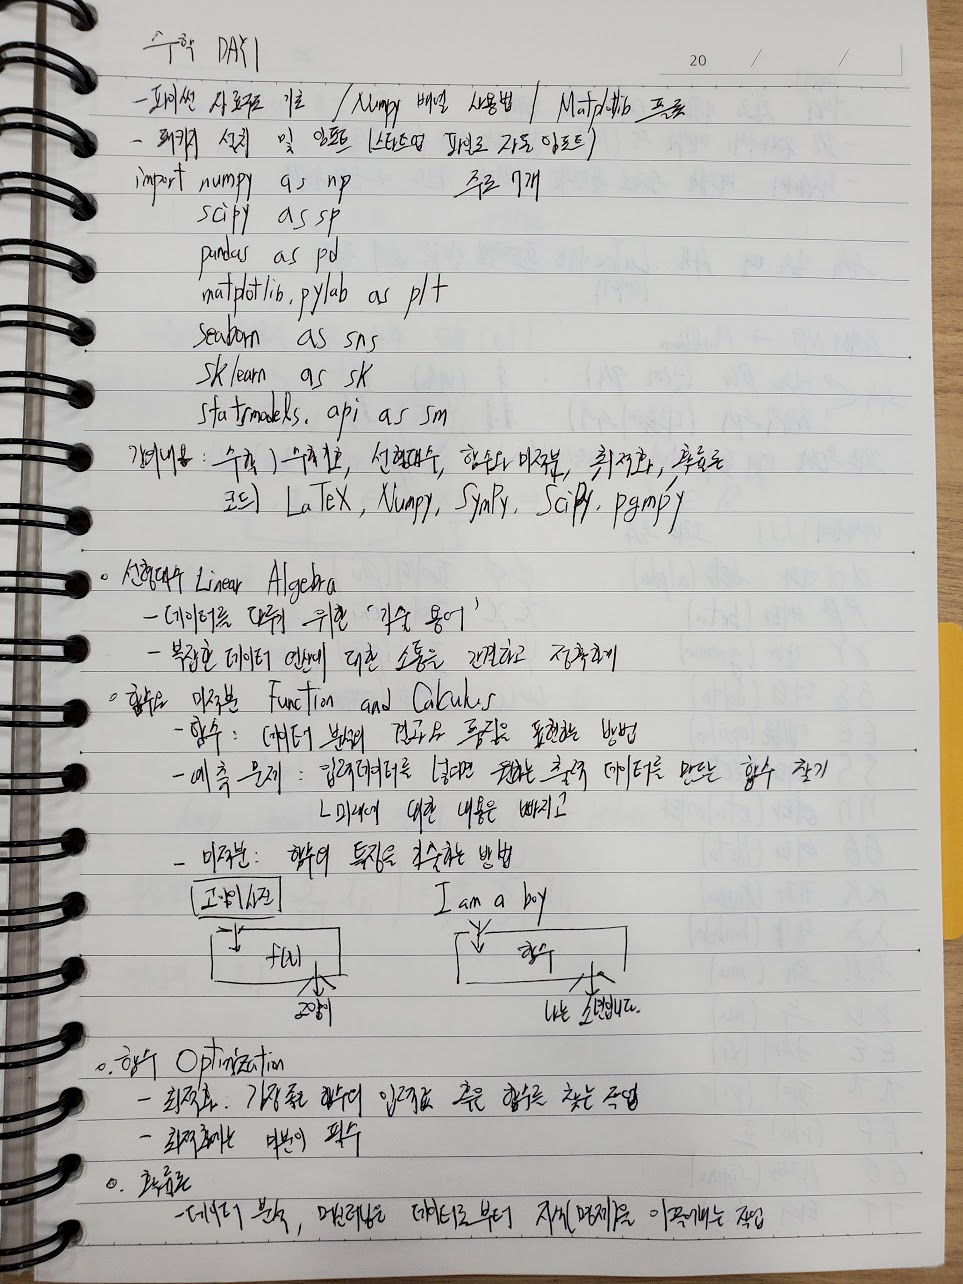 수학 DAY1
20 / /
- 파이썬 자료구조 기초 / Numpy 배열 사용법 / Matplotlib 플롯
- 패키지 설치 및 임포트 (스타트업 파일로 자동 임포트)
import numpy as np 주로 7개
scipy as sp
pandas as pd
matplotlib.pylab as plt
seaborn as sns
sklearn as sk
statsmodels.api as sm
강의내용 : 수학) 수학기초, 선형대수, 함수와 미적분, 최적화, 확률론
코드) LaTeX, Numpy, SymPy, SciPy, pgmpy
선형대수 Linear Algebra
- 데이터를 다루기 위한 '기술 용어'
- 복잡한 데이터 연산에 대한 소통을 간결하고 정확하게
함수와 미적분 Function and Calculus
- 함수 : 데이터 분석의 결과와 특징을 표현하는 방법
- 예측 문제 : 입력데이터를 넣으면 원하는 출력 데이터를 만드는 함수 찾기
ㄴ미래에 대한 내용은 빠지고
- 미적분 : 함수의 특징을 기술하는 방법
고양이사진 I am a boy
f(x) 함수
고양이 나는 소년입니다.
함수 Optimization
- 최적화 : 가장 좋은 함수의 입력값 혹은 함수를 찾는 작업
- 최적화에는 미분이 필수
확률론
- 데이터 분석, 머신러닝은 데이터로부터 지식(명제)을 이끌어내는 작업